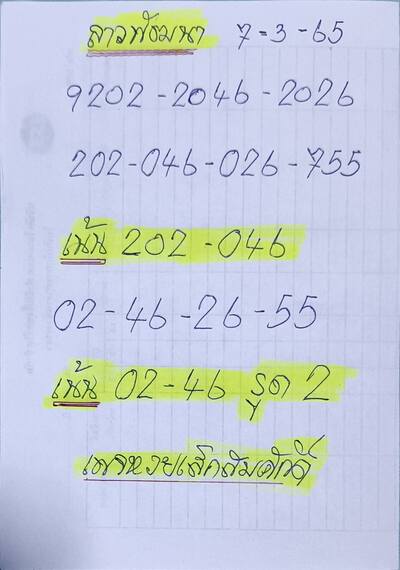 ลาวพัฒนา 7-3-65
9202-2046-2026
202-046-026-755
เน้น 202-046
02-46-26-55
เน้น 02-46 รูด 2
เพจหวยเล็กสมศักดิ์